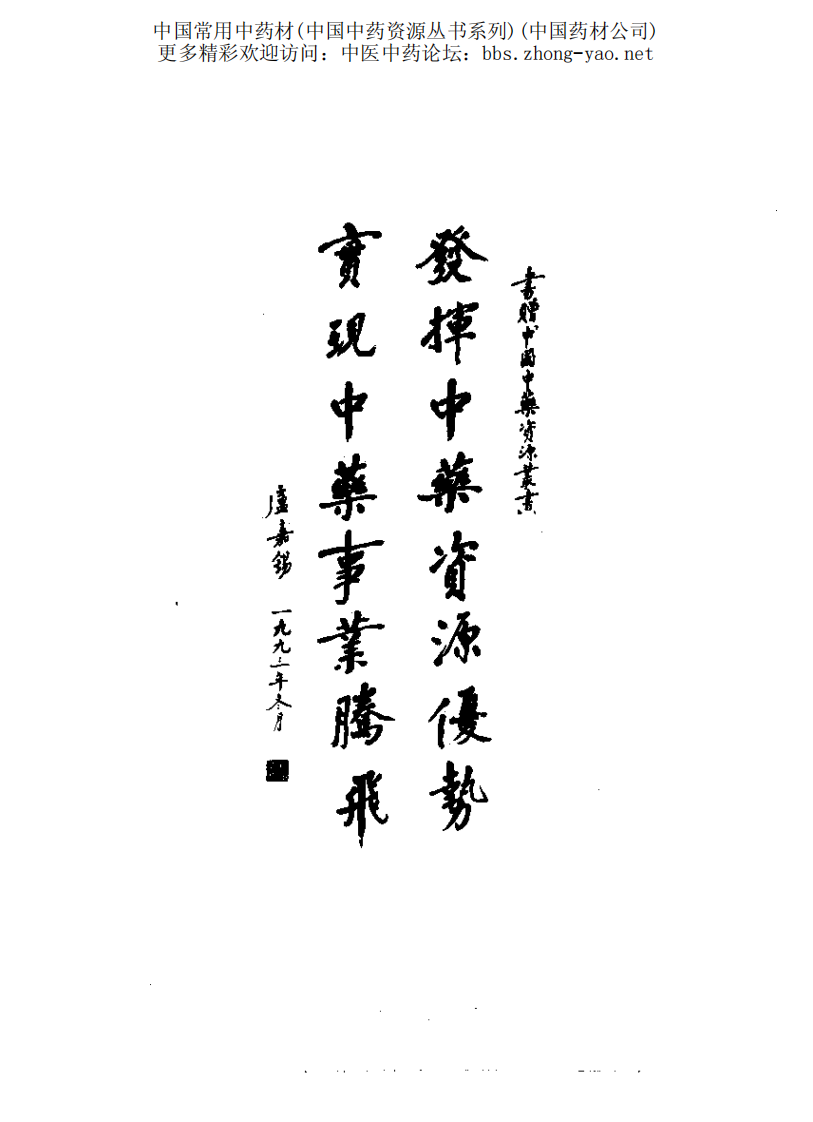 中国常用中药材(中国中药资源丛书系列)(中国药材公司)
更多精彩欢迎访问：中医中药论坛：bbs.zhong-yao.net
書贈中國中藥資源叢書
發揮中藥資源優勢
實現中藥事業騰飛
盧嘉錫 一九九三年冬月